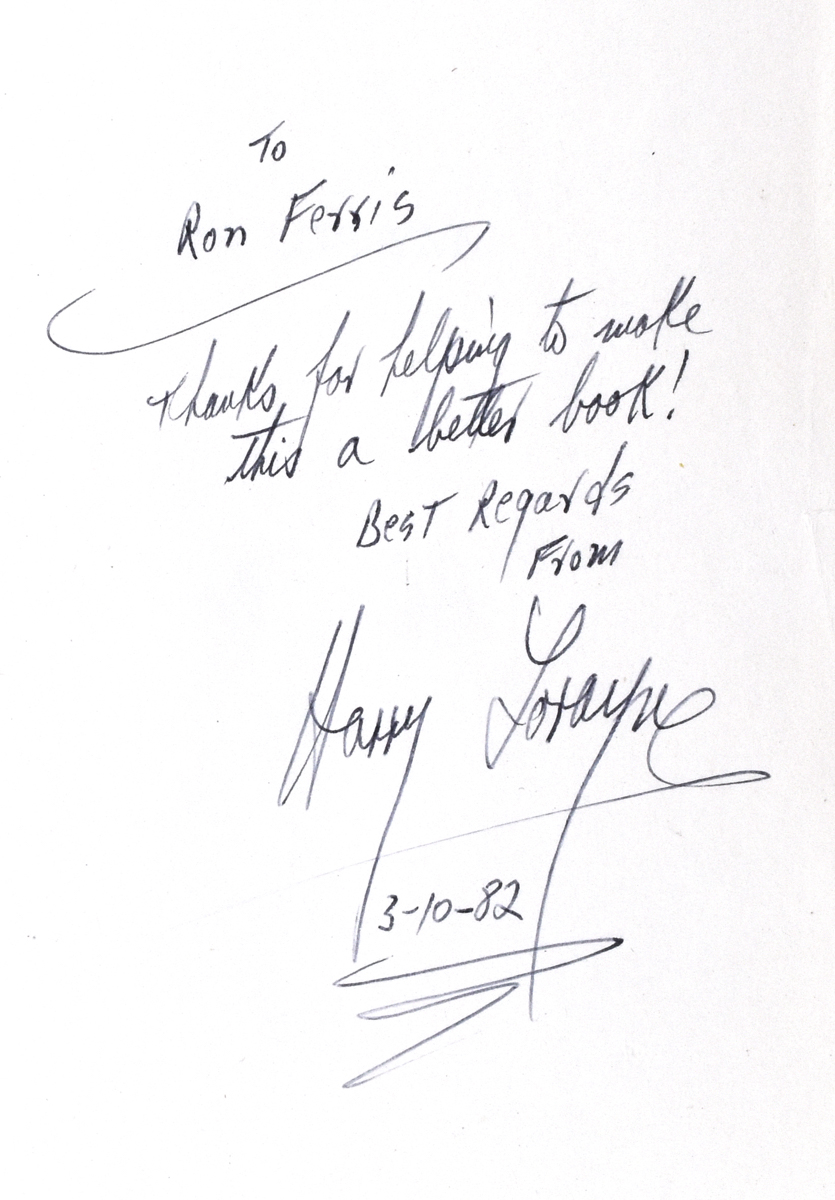 To
Ron Ferris
Thanks for helping to make
this a better book!
Best Regards
From
Harry Lorayne
3-10-82